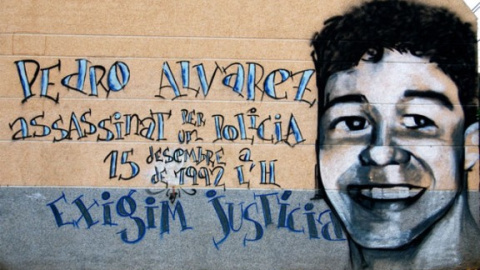 PEDRO ALVAREZ
ASSASSINAT PER UN POLICIA
15 DESEMBRE DE 1992 A L'H
EXIGIM JUSTÍCIA